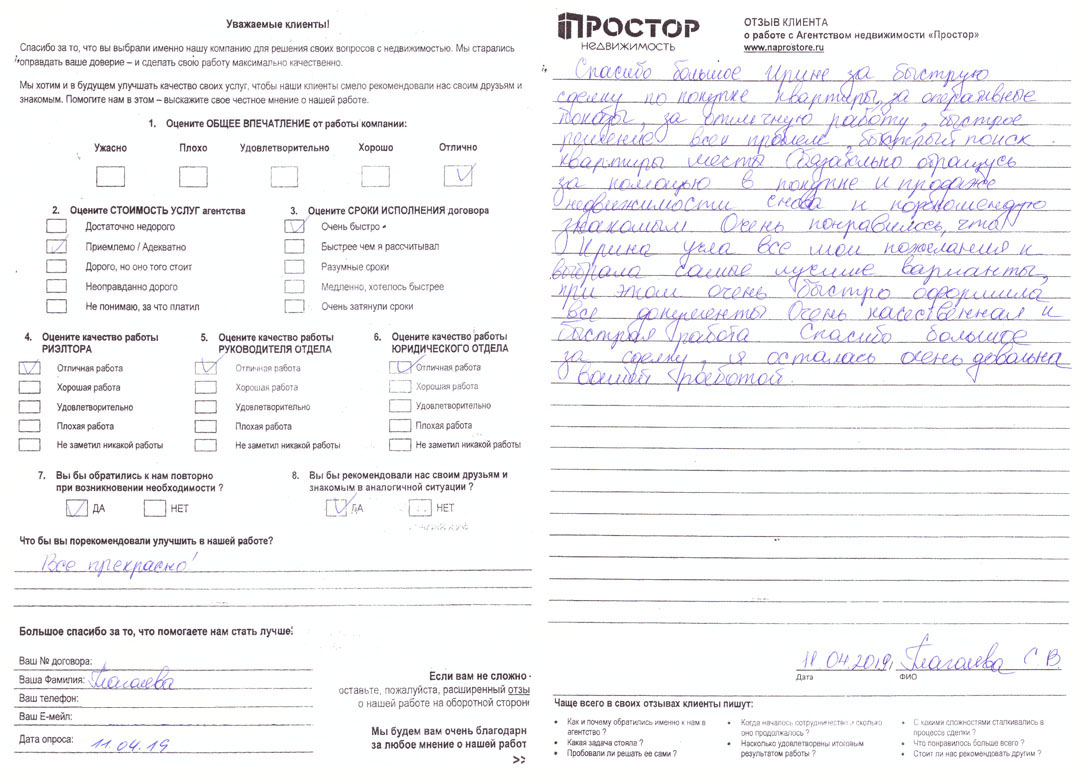 Уважаемые клиенты!
Спасибо за то, что вы выбрали именно нашу компанию для решения своих вопросов с недвижимостью. Мы старались
оправдать ваше доверие – и сделать свою работу максимально качественно.
Мы хотим и в будущем улучшать качество своих услуг, чтобы наши клиенты смело рекомендовали нас своим друзьям и
знакомым. Помогите нам в этом – выскажите свое честное мнение о нашей работе.
1. Оцените ОБЩЕЕ ВПЕЧАТЛЕНИЕ от работы компании:
Ужасно Плохо Удовлетворительно Хорошо Отлично
2. Оцените СТОИМОСТЬ УСЛУГ агентства
Достаточно недорого
Приемлемо / Адекватно
Дорого, но оно того стоит
Неоправданно дорого
Не понимаю, за что платил
3. Оцените СРОКИ ИСПОЛНЕНИЯ договора
Очень быстро
Быстрее чем я рассчитывал
Разумные сроки
Медленно, хотелось быстрее
Очень затянули сроки
4. Оцените качество работы
РИЭЛТОРА
Отличная работа
Хорошая работа
Удовлетворительно
Плохая работа
Не заметил никакой работы
5. Оцените качество работы
РУКОВОДИТЕЛЯ ОТДЕЛА
Отличная работа
Хорошая работа
Удовлетворительно
Плохая работа
Не заметил никакой работы
6. Оцените качество работы
ЮРИДИЧЕСКОГО ОТДЕЛА
Отличная работа
Хорошая работа
Удовлетворительно
Плохая работа
Не заметил никакой работы
7. Вы бы обратились к нам повторно
при возникновении необходимости ?
ДА НЕТ
8. Вы бы рекомендовали нас своим друзьям и
знакомым в аналогичной ситуации ?
ДА НЕТ
Что бы вы порекомендовали улучшить в нашей работе?
Все прекрасно!
Большое спасибо за то, что помогаете нам стать лучше!
Ваш № договора:
Ваша Фамилия:
Ваш телефон:
Ваш Е-мейл:
Дата опроса: 11.04.19
Если вам не сложно -
оставьте, пожалуйста, расширенный отзы
о нашей работе на оборотной стороне
Мы будем вам очень благодарн
за любое мнение о нашей работ
>>
ПРОСТОР
НЕДВИЖИМОСТЬ
ОТЗЫВ КЛИЕНТА
о работе с Агентством недвижимости «Простор»
www.naprostore.ru
Спасибо большое Ирине за быструю
сделку по покупке квартиры, за оперативные
показы, за отличную работу, быстрое
решение всех проблем, быстрый поиск
квартиры мечты Обязательно обращусь
за помощью в покупке и продаже
недвижимости снова и порекомендую
знакомым Очень понравилось, что
Ирина учла все мои пожелания и
выбрала самые лучшие варианты,
при этом очень быстро оформила
все документы Очень качественная и
быстрая работа Спасибо большое
за сделку, я осталась очень довольна
вашей работой.
11 04.2019 С В.
Дата ФИО
Чаще всего в своих отзывах клиенты пишут:
• Как и почему обратились именно к нам в
агентство ?
• Какая задача стояла ?
• Пробовали ли решать ее сами ?
• Когда началось сотрудничество и сколько
оно продолжалось ?
• Насколько удовлетворены итоговым
результатом работы ?
• С какими сложностями сталкивались в
процессе сделки ?
• Что понравилось больше всего ?
• Стоит ли нас рекомендовать другим ?